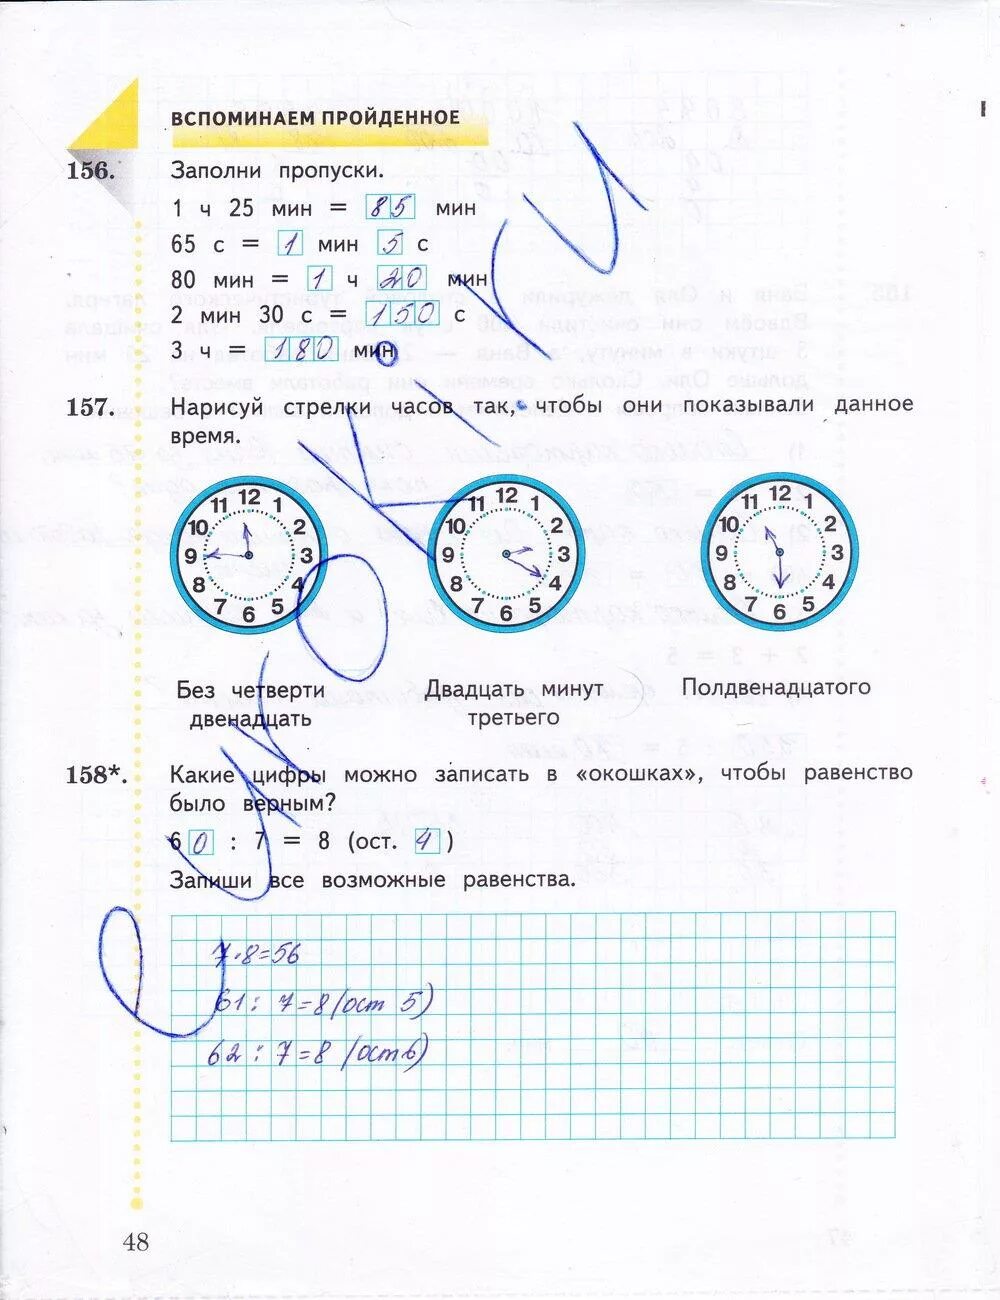 ВСПОМИНАЕМ ПРОЙДЕННОЕ
156. Заполни пропуски.
1 ч 25 мин = 85 мин
65 с = 1 мин 5 с
80 мин = 1 ч 20 мин
2 мин 30 с = 150 с
3 ч = 180 мин
157. Нарисуй стрелки часов так, чтобы они показывали данное
время.
12 1 2 3 4 5 6 7 8 9 10 11
12 1 2 3 4 5 6 7 8 9 10 11
12 1 2 3 4 5 6 7 8 9 10 11
Без четверти
двенадцать
Двадцать минут
третьего
Полдвенадцатого
158*. Какие цифры можно записать в «окошках», чтобы равенство
было верным?
60 : 7 = 8 (ост. 4)
Запиши все возможные равенства.
7·8=56
61 : 7=8 (ост 5)
62 : 7=8 (ост 6)
48